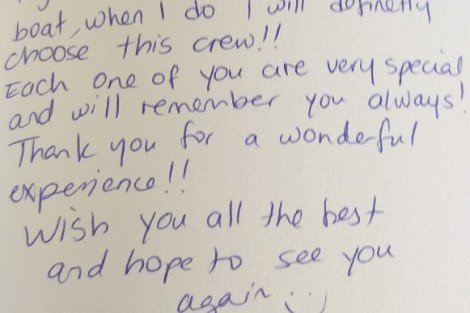 boat, when I do I will definetly
choose this crew!!
Each one of you are very special
and will remember you always!
Thank you for a wonderful
experience!!
Wish you all the best
and hope to see you
again :)